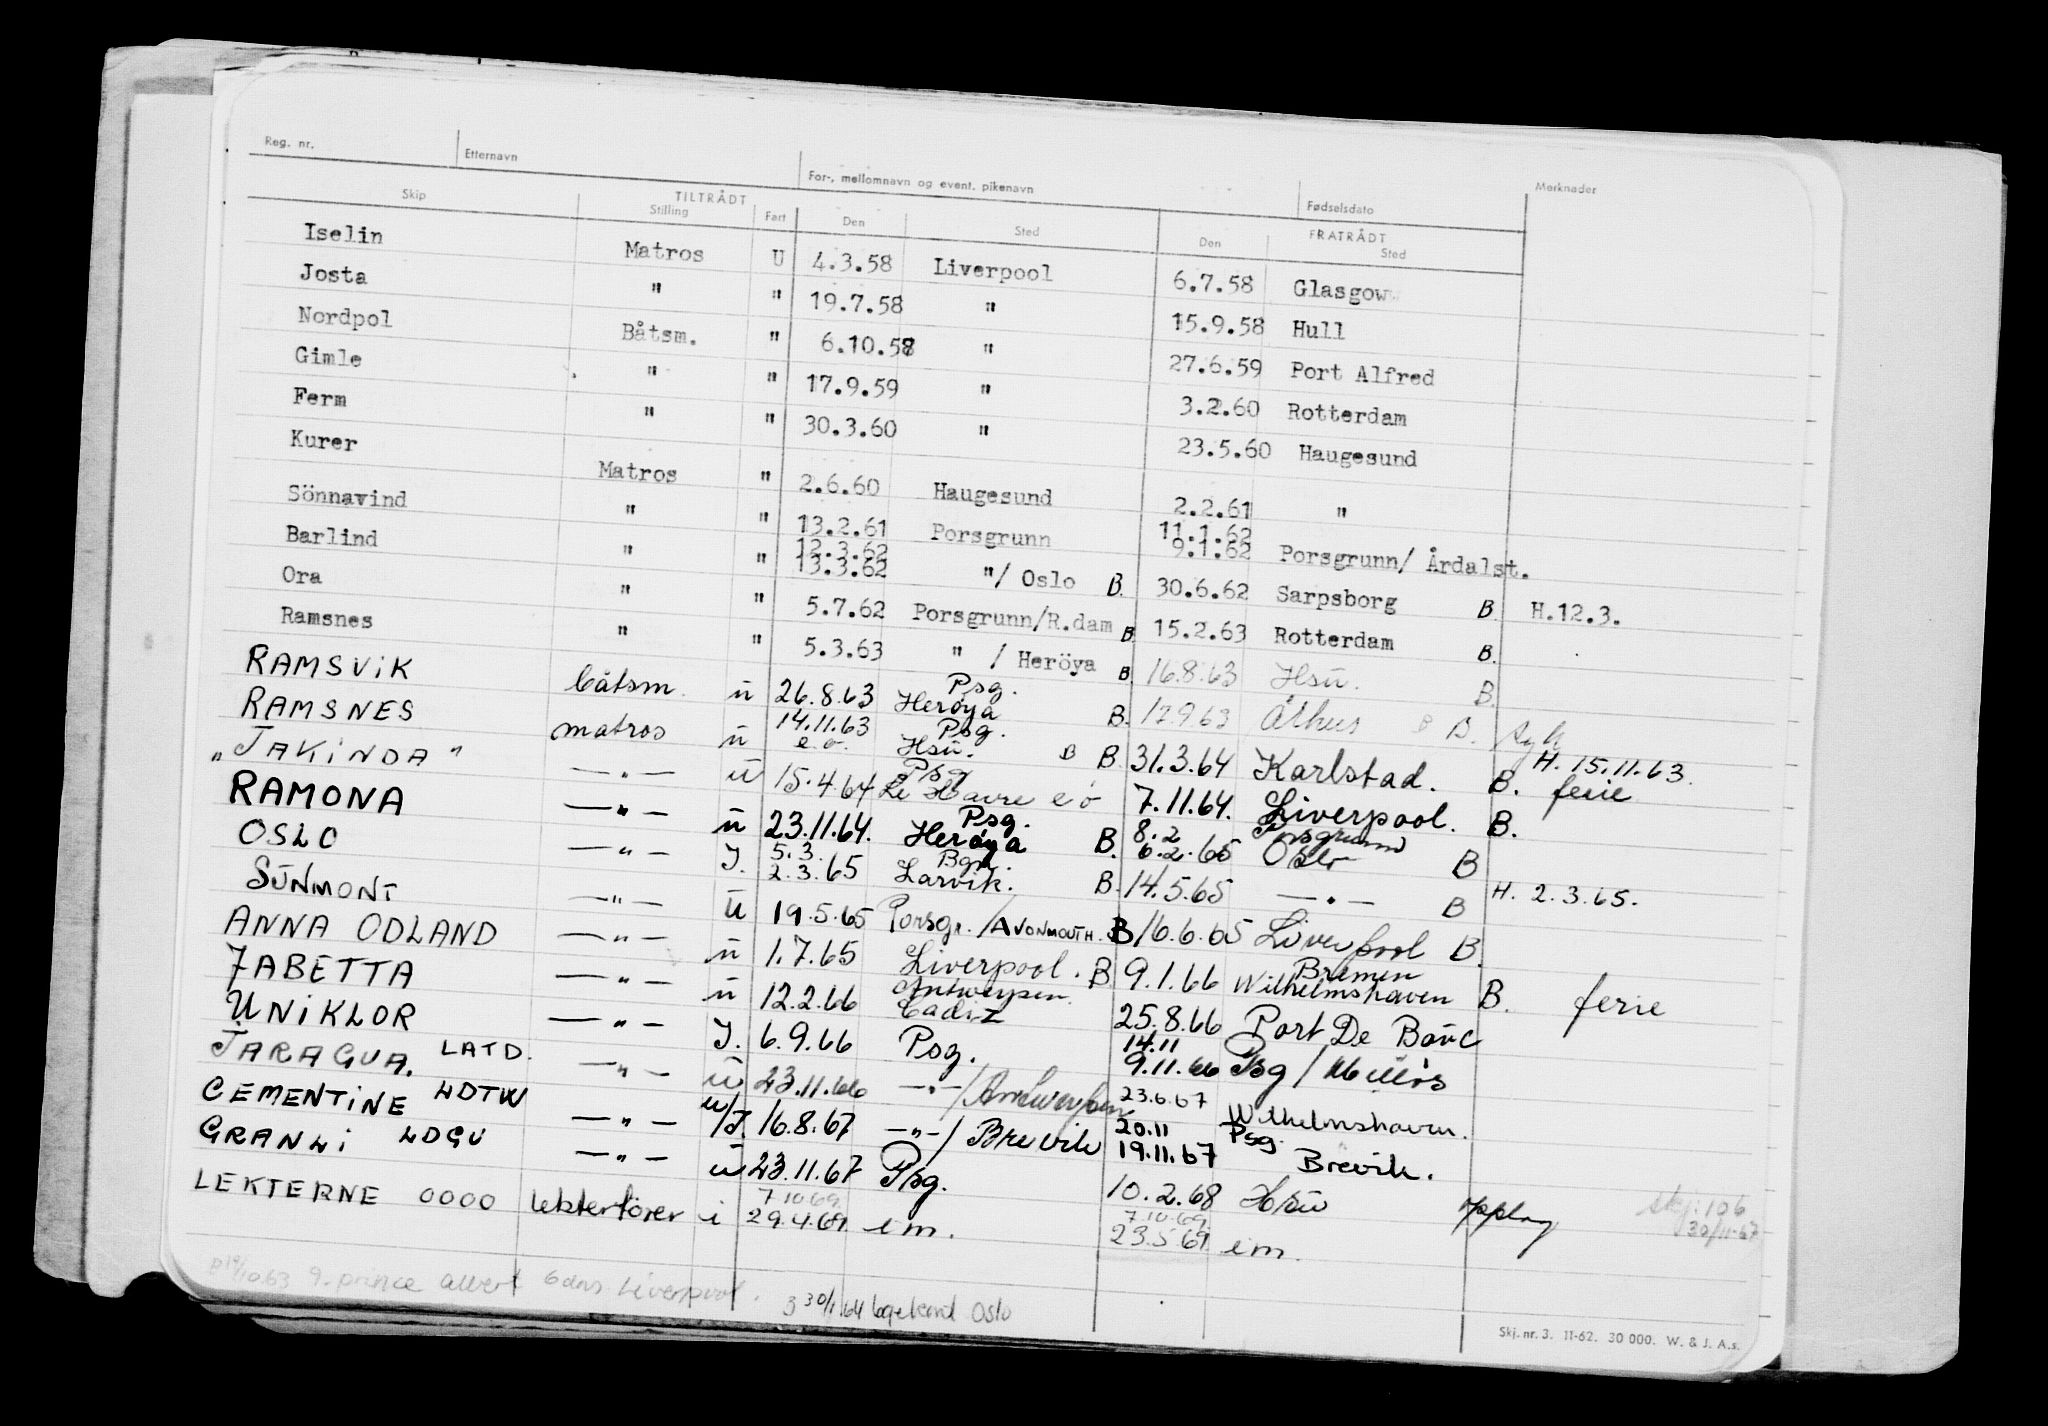 Reg. nr. Etternavn For-, mellomnavn og event. pikenavn Fødselsdato Merknader
TILTRÅDT FRATRÅDT
Skip Stilling Fart Den Sted Den Sted
Iselin Matros U 4.3.58 Liverpool 6.7.58 Glasgow
Josta " " 19.7.58 " 15.9.58 Hull
Nordpol Båtsm. " 6.10.58 " 27.6.59 Port Alfred
Gimle " " 17.9.59 " 3.2.60 Rotterdam
Ferm " " 30.3.60 " 23.5.60 Haugesund
Kurer Matros " 2.6.60 Haugesund 2.2.61 "
Sönnavind " " 13.2.61 Porsgrunn 11.1.62 9.1.62 Porsgrunn/ Årdalst.
Barlind " " 12.3.62 13.3.62 "/ Oslo B. 30.6.62 Sarpsborg B H.12.3.
Ora " " 5.7.62 Porsgrunn/R.dam B. 15.2.63 Rotterdam B.
Ramsnes " " 5.3.63 " / Heröya B. 16.8.63 Hsü. B
RAMSViK båtsm. ü 26.8.63 Psg. Herøya B. 17.9.63 Århus B B. syk
RAMSNES matros ü 14.11.63 e.o. Psg. Hsü. B B. 31.3.64 Karlstad. B. H. 15.11.63. ferie
"JAKiNDA" —"— ü 15.4.64 Psg Le Havre e o 7.11.64. Liverpool. B.
RAMONA —"— ü 23.11.64. Psg. Herøya B. 8.2 6.2.65 Porsgrunn Oslo B
OSLO —"— J. 5.3. 2.3.65 Bgn. Larvik. B. 14.5.65 —"— B H. 2.3.65.
SÜNMONT —"— ü 19.5.65 Porsgr./AVONMOUTH. B 16.6.65 Liverpool B.
ANNA ODLAND —"— ü 1.7.65 Liverpool. B 9.1.66 Bremen Wilhelmshaven B. ferie
JABETTA —"— ü 12.2.66 Antwerpen Cadiz 25.8.66 Port De Bouc
UNiKLOR —"— J. 6.9.66 Psg. 14.11 9.11.66 Psg /
JARAGUA. LATD. —"— ü 23.11.66 —"—/Antwerpen 23.6.67 Wilhelmshaven.
CEMENTiNE LDTW —"— u/J. 16.8.67 —"—/ Brevik 20.11 19.11.67 Psg. Brevik.
GRANLi LDGU —"— ü 23.11.67 Psg. 10.2.68 Hsü skj: 106 30/11-67
LEKTERNE OOOO lekterfører i 7.10.69. 29.4.69. em. 7.10.69. 23.5 69. em.
9. prince albert 6 dns Liverpool. 3 30/1.64 Oslo
Skj. nr. 3. 11-62. 30 000. W. & J. A.s.